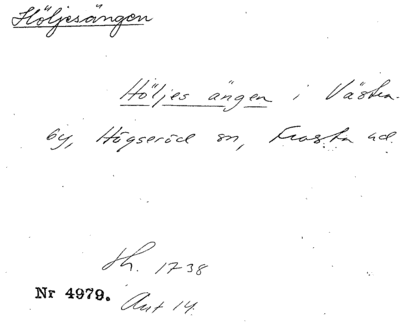 Höljesängen
Höljes ängen i Västra-
by, Högseröd sn, Frosta hd.
Sk. 1738
Nr 4979. Ant 14.